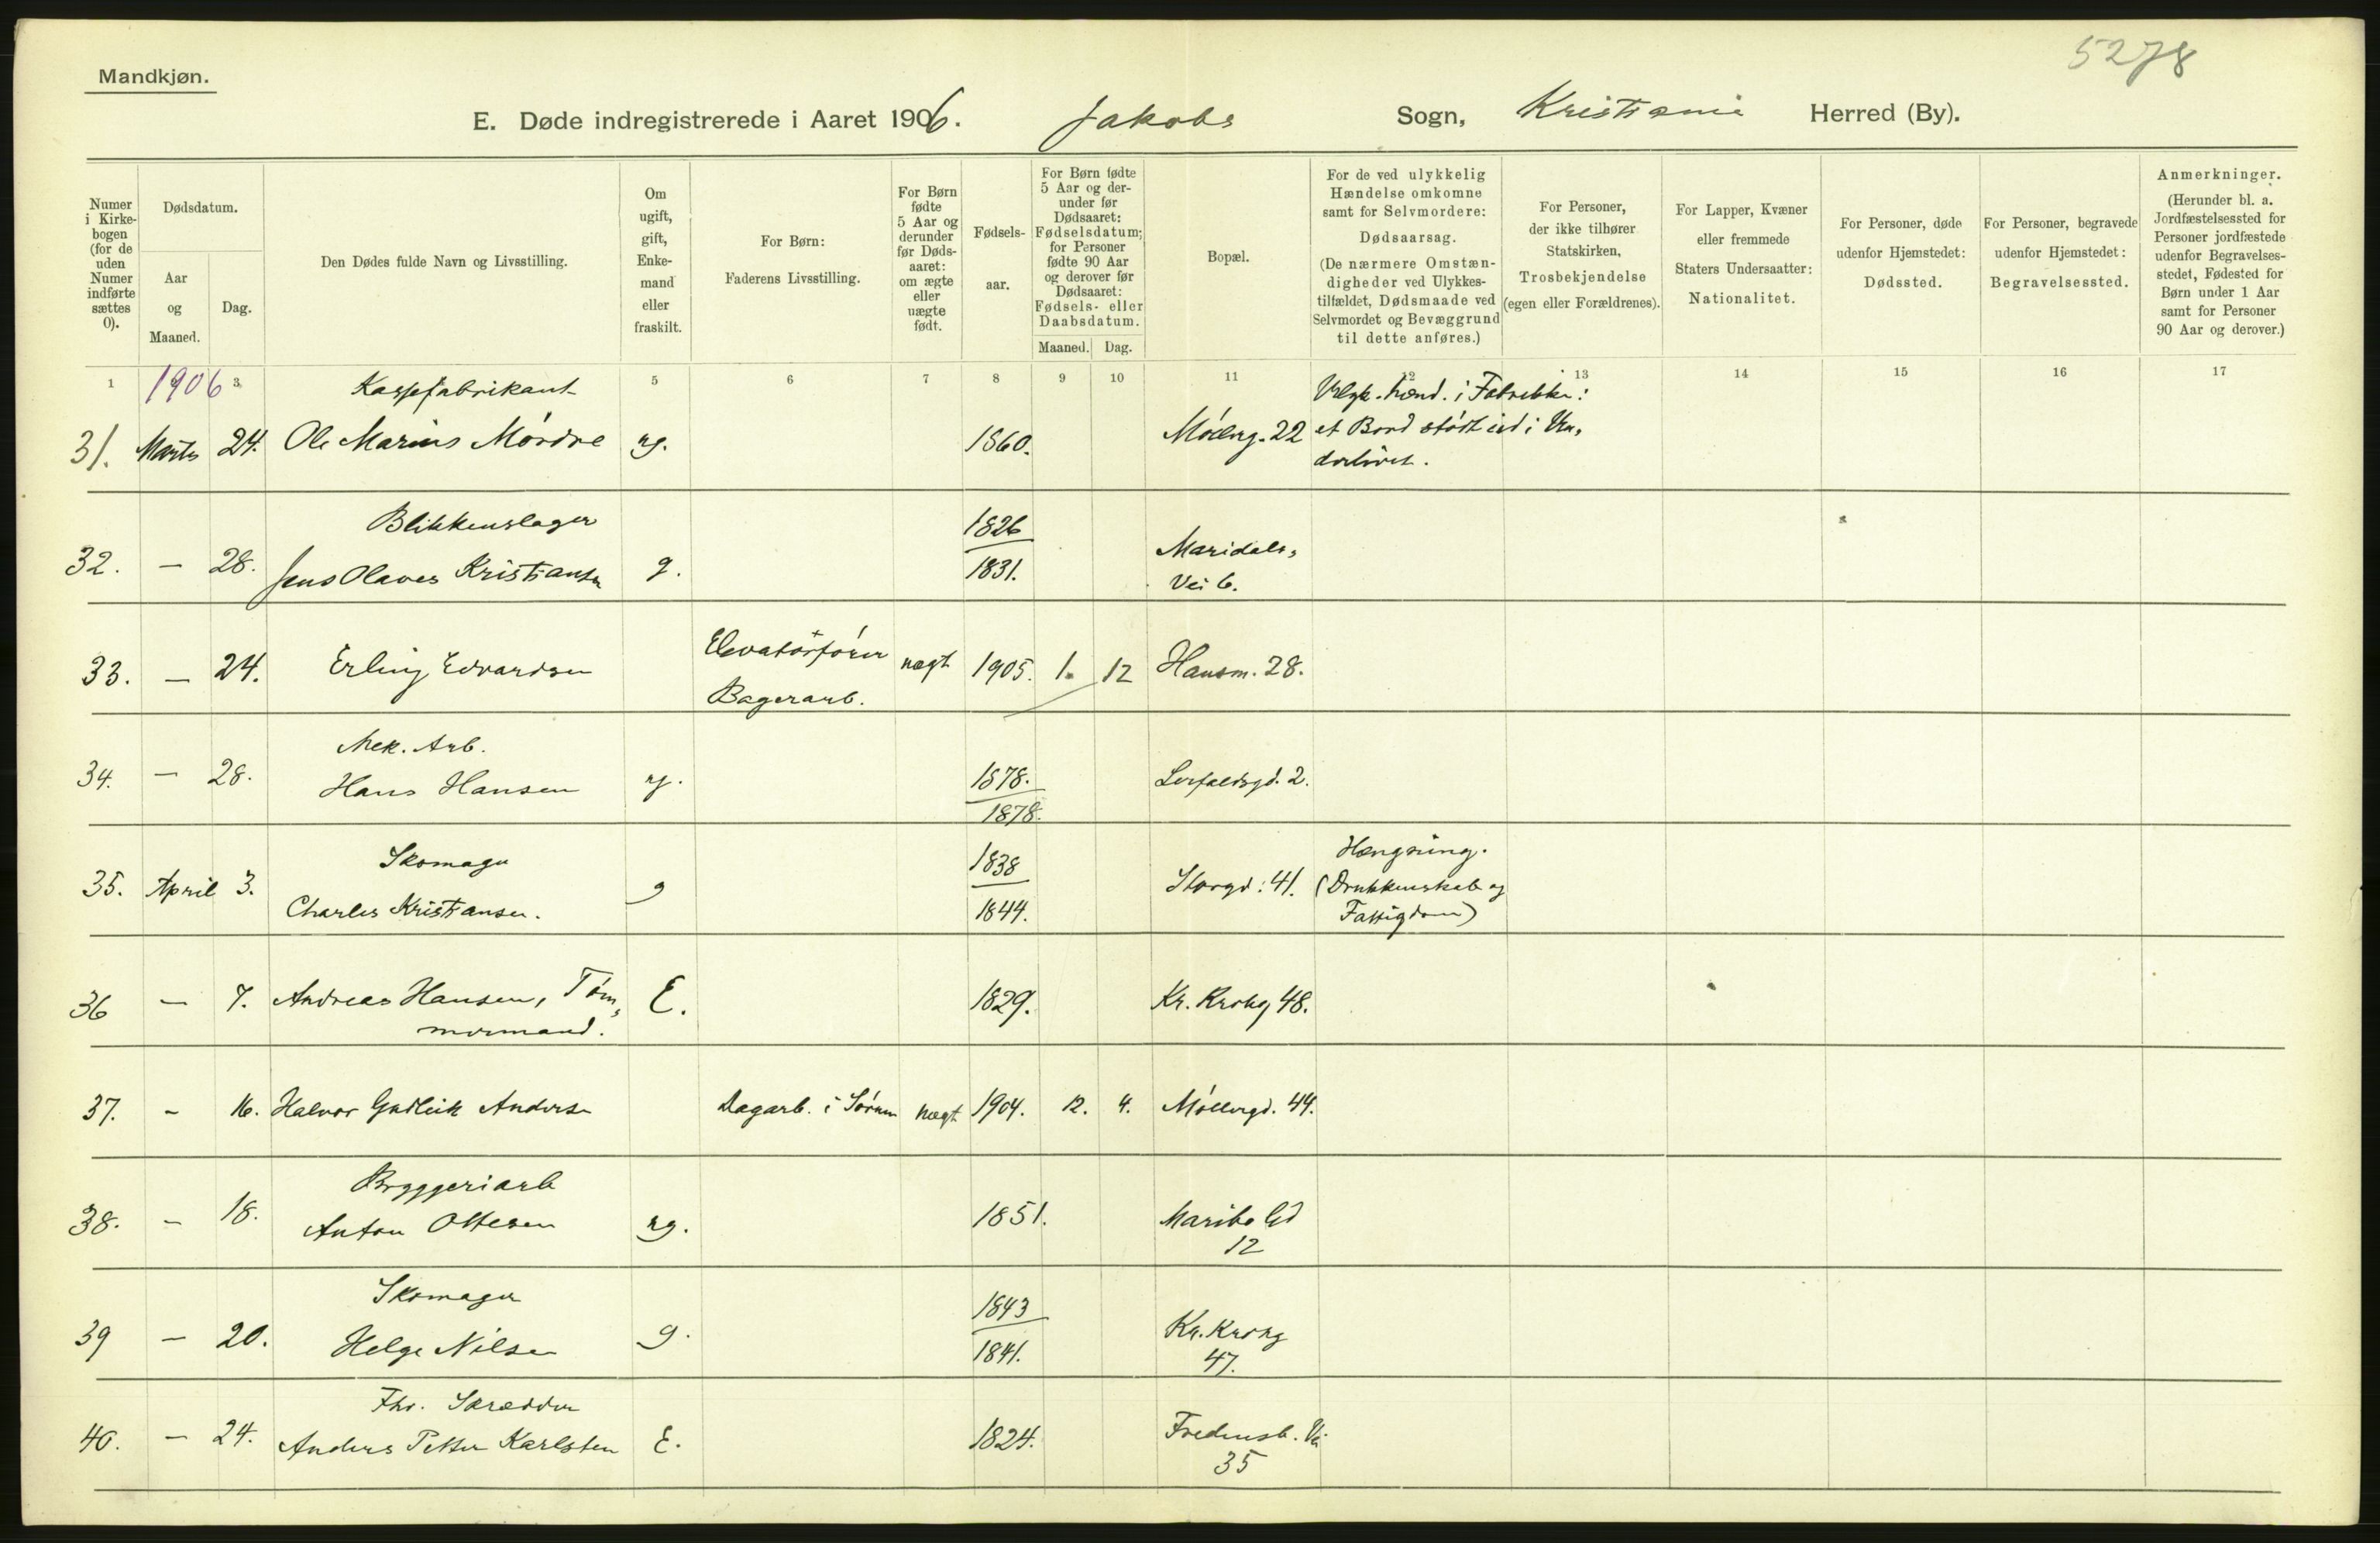 5278
Mandkjøn.
E. Døde indregistrerede i Aaret 1906. Jakobs Sogn, Kristiania Herred (By).
Numer i Kirke-bogen (for de uden Numer indførte sættes 0).
Dødsdatum.
Aar og Maaned.
Dag.
Den Dødes fulde Navn og Livsstilling.
Om ugift, gift, Enke-mand eller fraskilt.
For Børn:
Faderens Livsstilling.
For Børn fødte 5 Aar og derunder før Døds-aaret: om ægte eller uægte født.
Fødsels-aar.
For Børn fødte 5 Aar og der-under før Dødsaaret: Fødselsdatum; for Personer fødte 90 Aar og derover før Dødsaaret: Fødsels- eller Daabsdatum.
Maaned. Dag.
Bopæl.
For de ved ulykkelig Hændelse omkomne samt for Selvmordere:
Dødsaarsag.
(De nærmere Omstæn-digheder ved Ulykkes-tilfældet, Dødsmaade ved Selvmordet og Bevæggrund til dette anføres.)
For Personer, der ikke tilhører Statskirken,
Trosbekjendelse
(egen eller Forældrenes).
For Lapper, Kvæner eller fremmede Staters Undersaatter:
Nationalitet.
For Personer, døde udenfor Hjemstedet:
Dødssted.
For Personer, begravede udenfor Hjemstedet:
Begravelsessted.
Anmerkninger.
(Herunder bl. a. Jordfæstelsessted for Personer jordfæstede udenfor Begravelses-stedet, Fødested for Børn under 1 Aar samt for Personer 90 Aar og derover.)
1 1906 3 5 6 7 8 9 10 11 12 13 14 15 16 17
Kassefabrikant Ulyk. hænd. i Fabrikken:
31. Marts 24. Ole Marius Mórdre ug. 1860. Móllerg. 22 et Bord stódt ind i Un-
derlivet.
Blikkenslager 1826
32. — 28. Jens Olaves Kristiansen g. 1831. Maridals-
Vei 6.
Elevatórfórer
33. — 24. Erling Edvardsen uægt 1905. 1. 12 Hausm. 28.
Bagerarb.
Mek. Arb.
34. — 28. Hans Hansen ug. 1878. 2.
1878.
Skomager 1838 Hængning.
35. April 3. Charles Kristiansen. g 1844. Storgd: 41. (Drukkenskab og
Fattigdom)
36 — 7. Andreas Hansen, Tóm- E. 1829. Kr. Krohg 48.
mermand.
37. - 16. Halvor Gudleik Andersen Dagarb. i Sórum uægt 1904. 12. 4. Móllergd. 44.
Bryggeriarb
38. - 18. Anton Ottesen ug. 1851. Maribo Gd
12
Skomager 1843
39 — 20. Helge Nilsen g. 1841. Kr. Krohg
47.
Fhv. Skrædder
40. — 24. Anders Petter Karlsten E. 1824. Fredensb. Vei
35